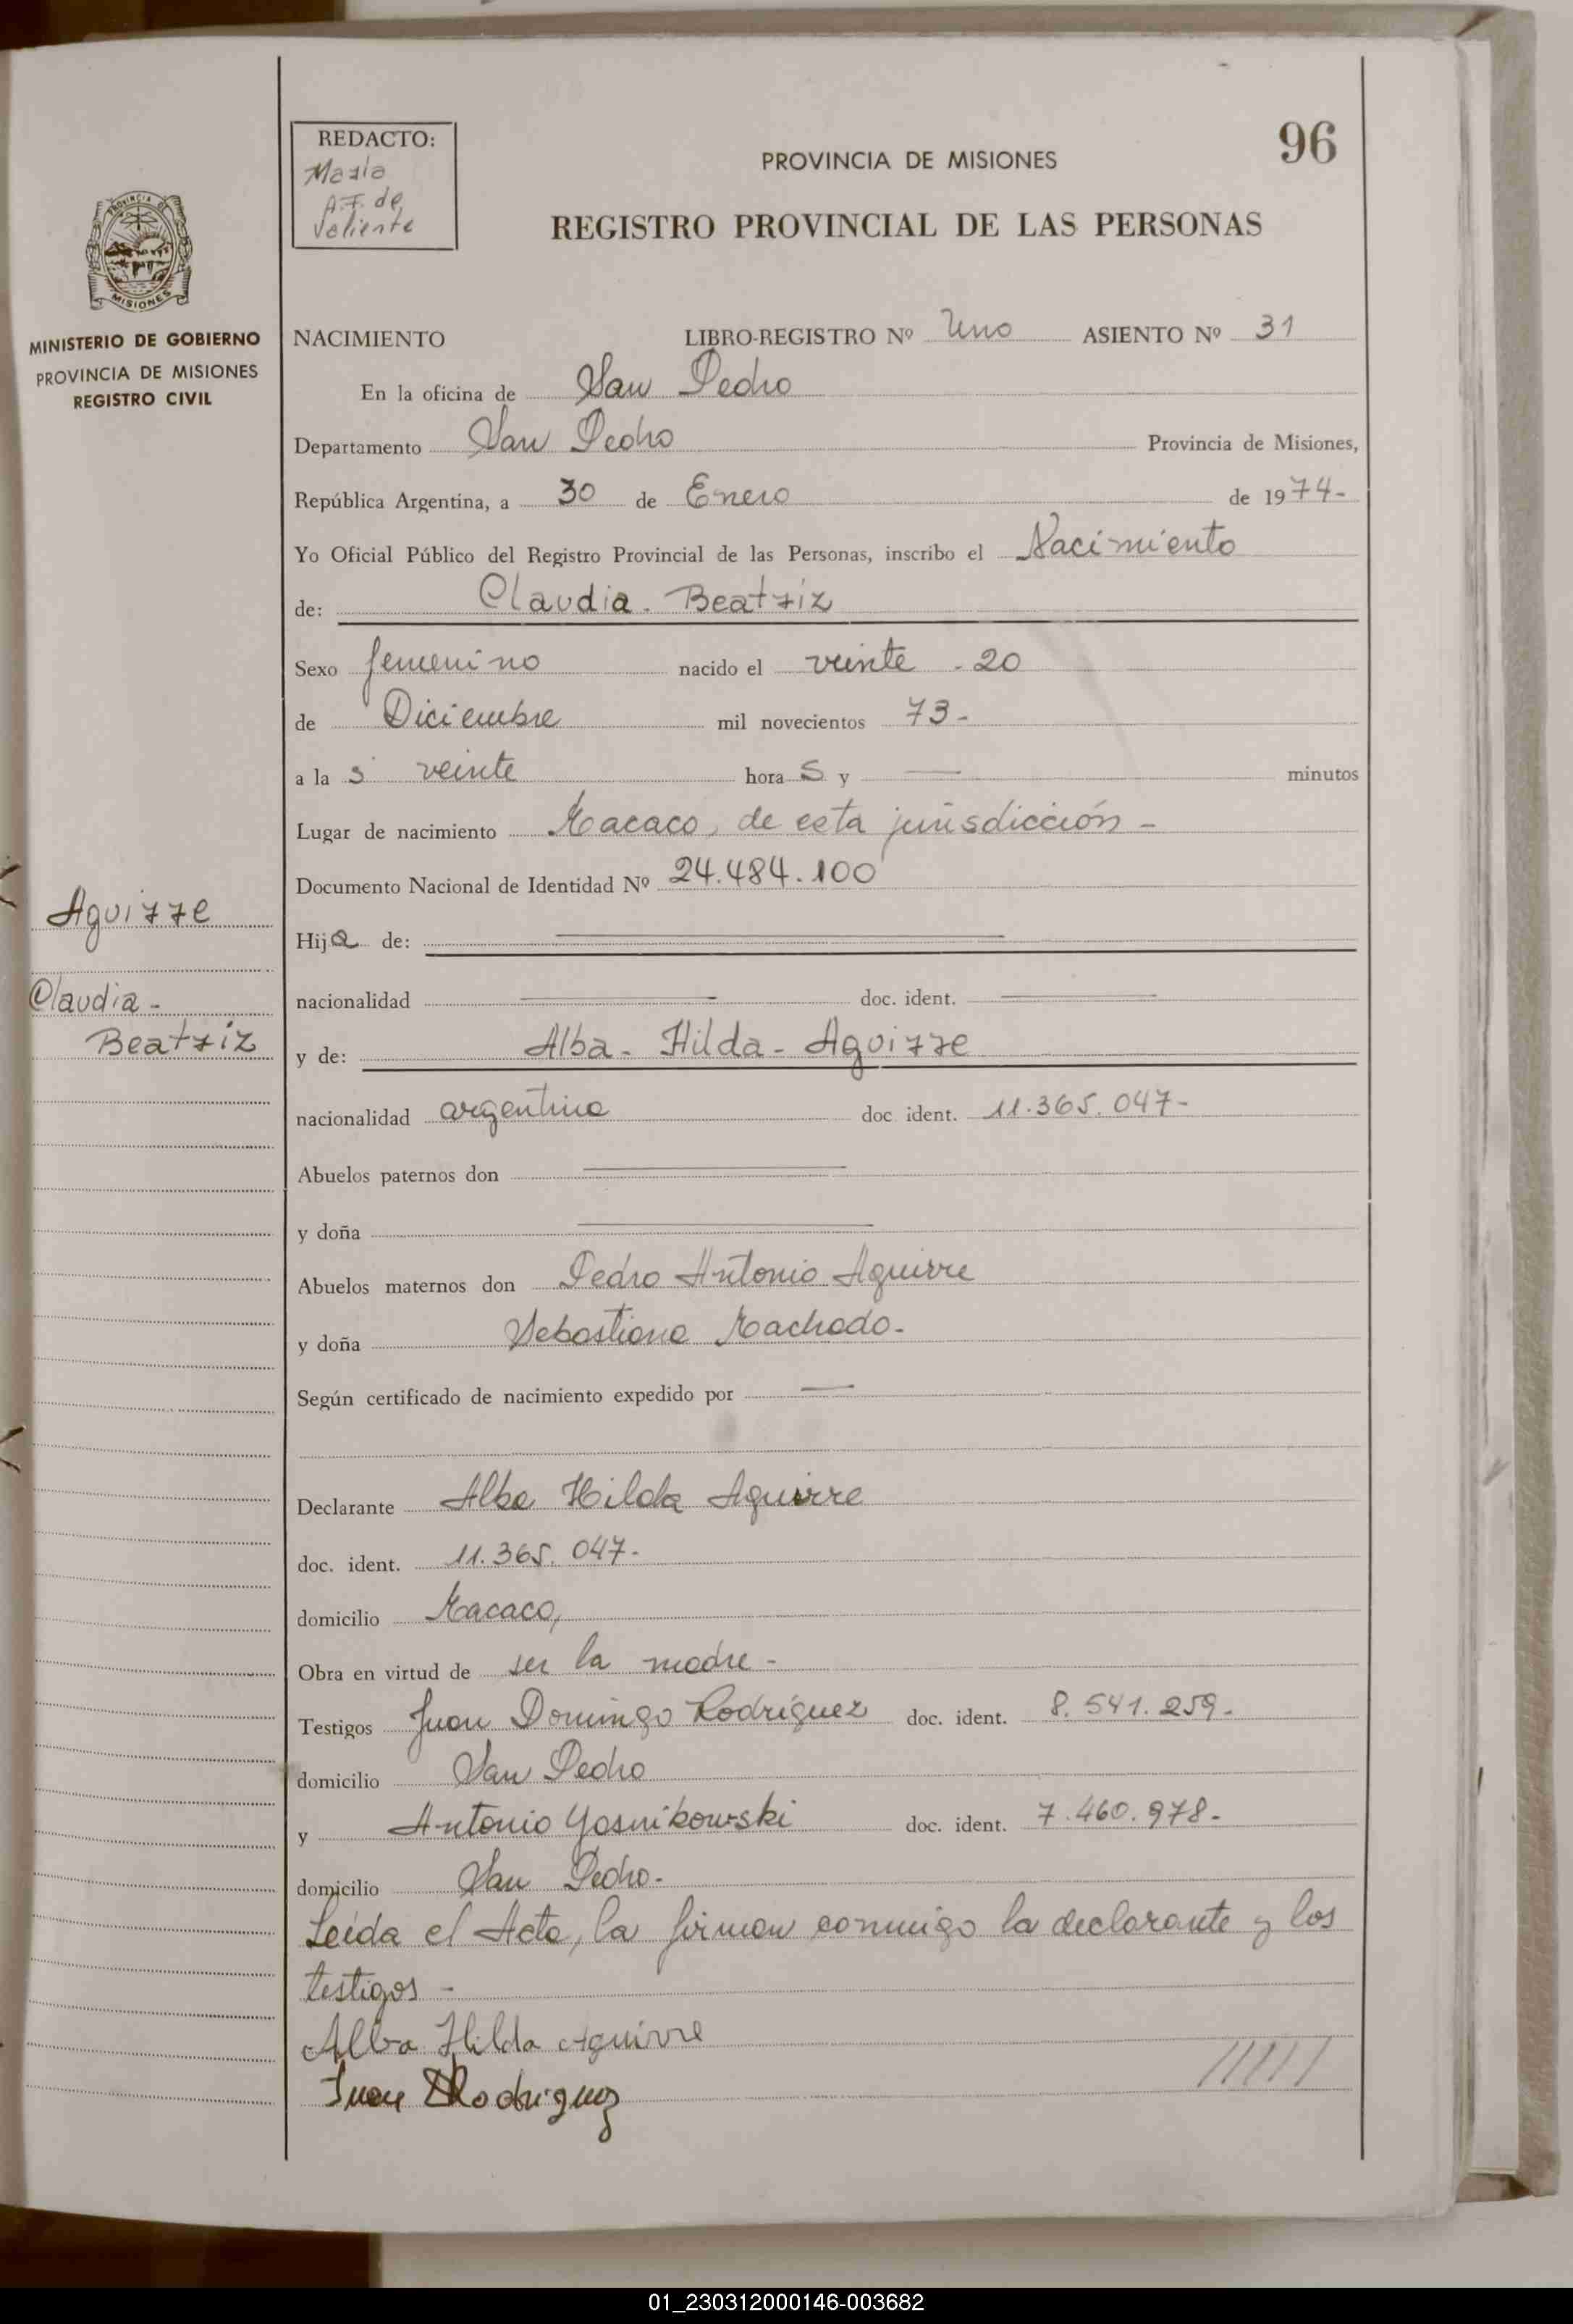 REDACTO:
María
A.F. de
Valiente
96
PROVINCIA DE MISIONES
REGISTRO PROVINCIAL DE LAS PERSONAS
PROVINCIA DE
MISIONES
MINISTERIO DE GOBIERNO
PROVINCIA DE MISIONES
REGISTRO CIVIL
NACIMIENTO LIBRO-REGISTRO Nº Uno ASIENTO Nº 31
En la oficina de San Pedro
Departamento San Pedro Provincia de Misiones,
República Argentina, a 30 de Enero de 1974-
Yo Oficial Público del Registro Provincial de las Personas, inscribo el Nacimiento
de: Claudia - Beatriz
Sexo femenino nacido el veinte - 20
de Diciembre mil novecientos 73-
a la s veinte hora s y — minutos
Lugar de nacimiento Macaco, de esta jurisdicción -
Documento Nacional de Identidad Nº 24.484.100
Aguirre
Claudia -
Beatriz
Hija de: —
nacionalidad — doc. ident. —
y de: Alba - Hilda - Aguirre
nacionalidad argentina doc. ident. 11.365.047-
Abuelos paternos don —
y doña —
Abuelos maternos don Pedro Antonio Aguirre
y doña Sebastiana Machado-
Según certificado de nacimiento expedido por —
Declarante Alba Hilda Aguirre
doc. ident. 11.365.047-
domicilio Macaco,
Obra en virtud de ser la madre -
Testigos Juan Domingo Rodríguez doc. ident. 8.541.259-
domicilio San Pedro
y Antonio Yasnikowski doc. ident. 7.460.978-
domicilio San Pedro-
Leída el Acta, la firman conmigo la declarante y los
testigos -
Alba Hilda Aguirre
Juan D Rodriguez
01_230312000146-003682